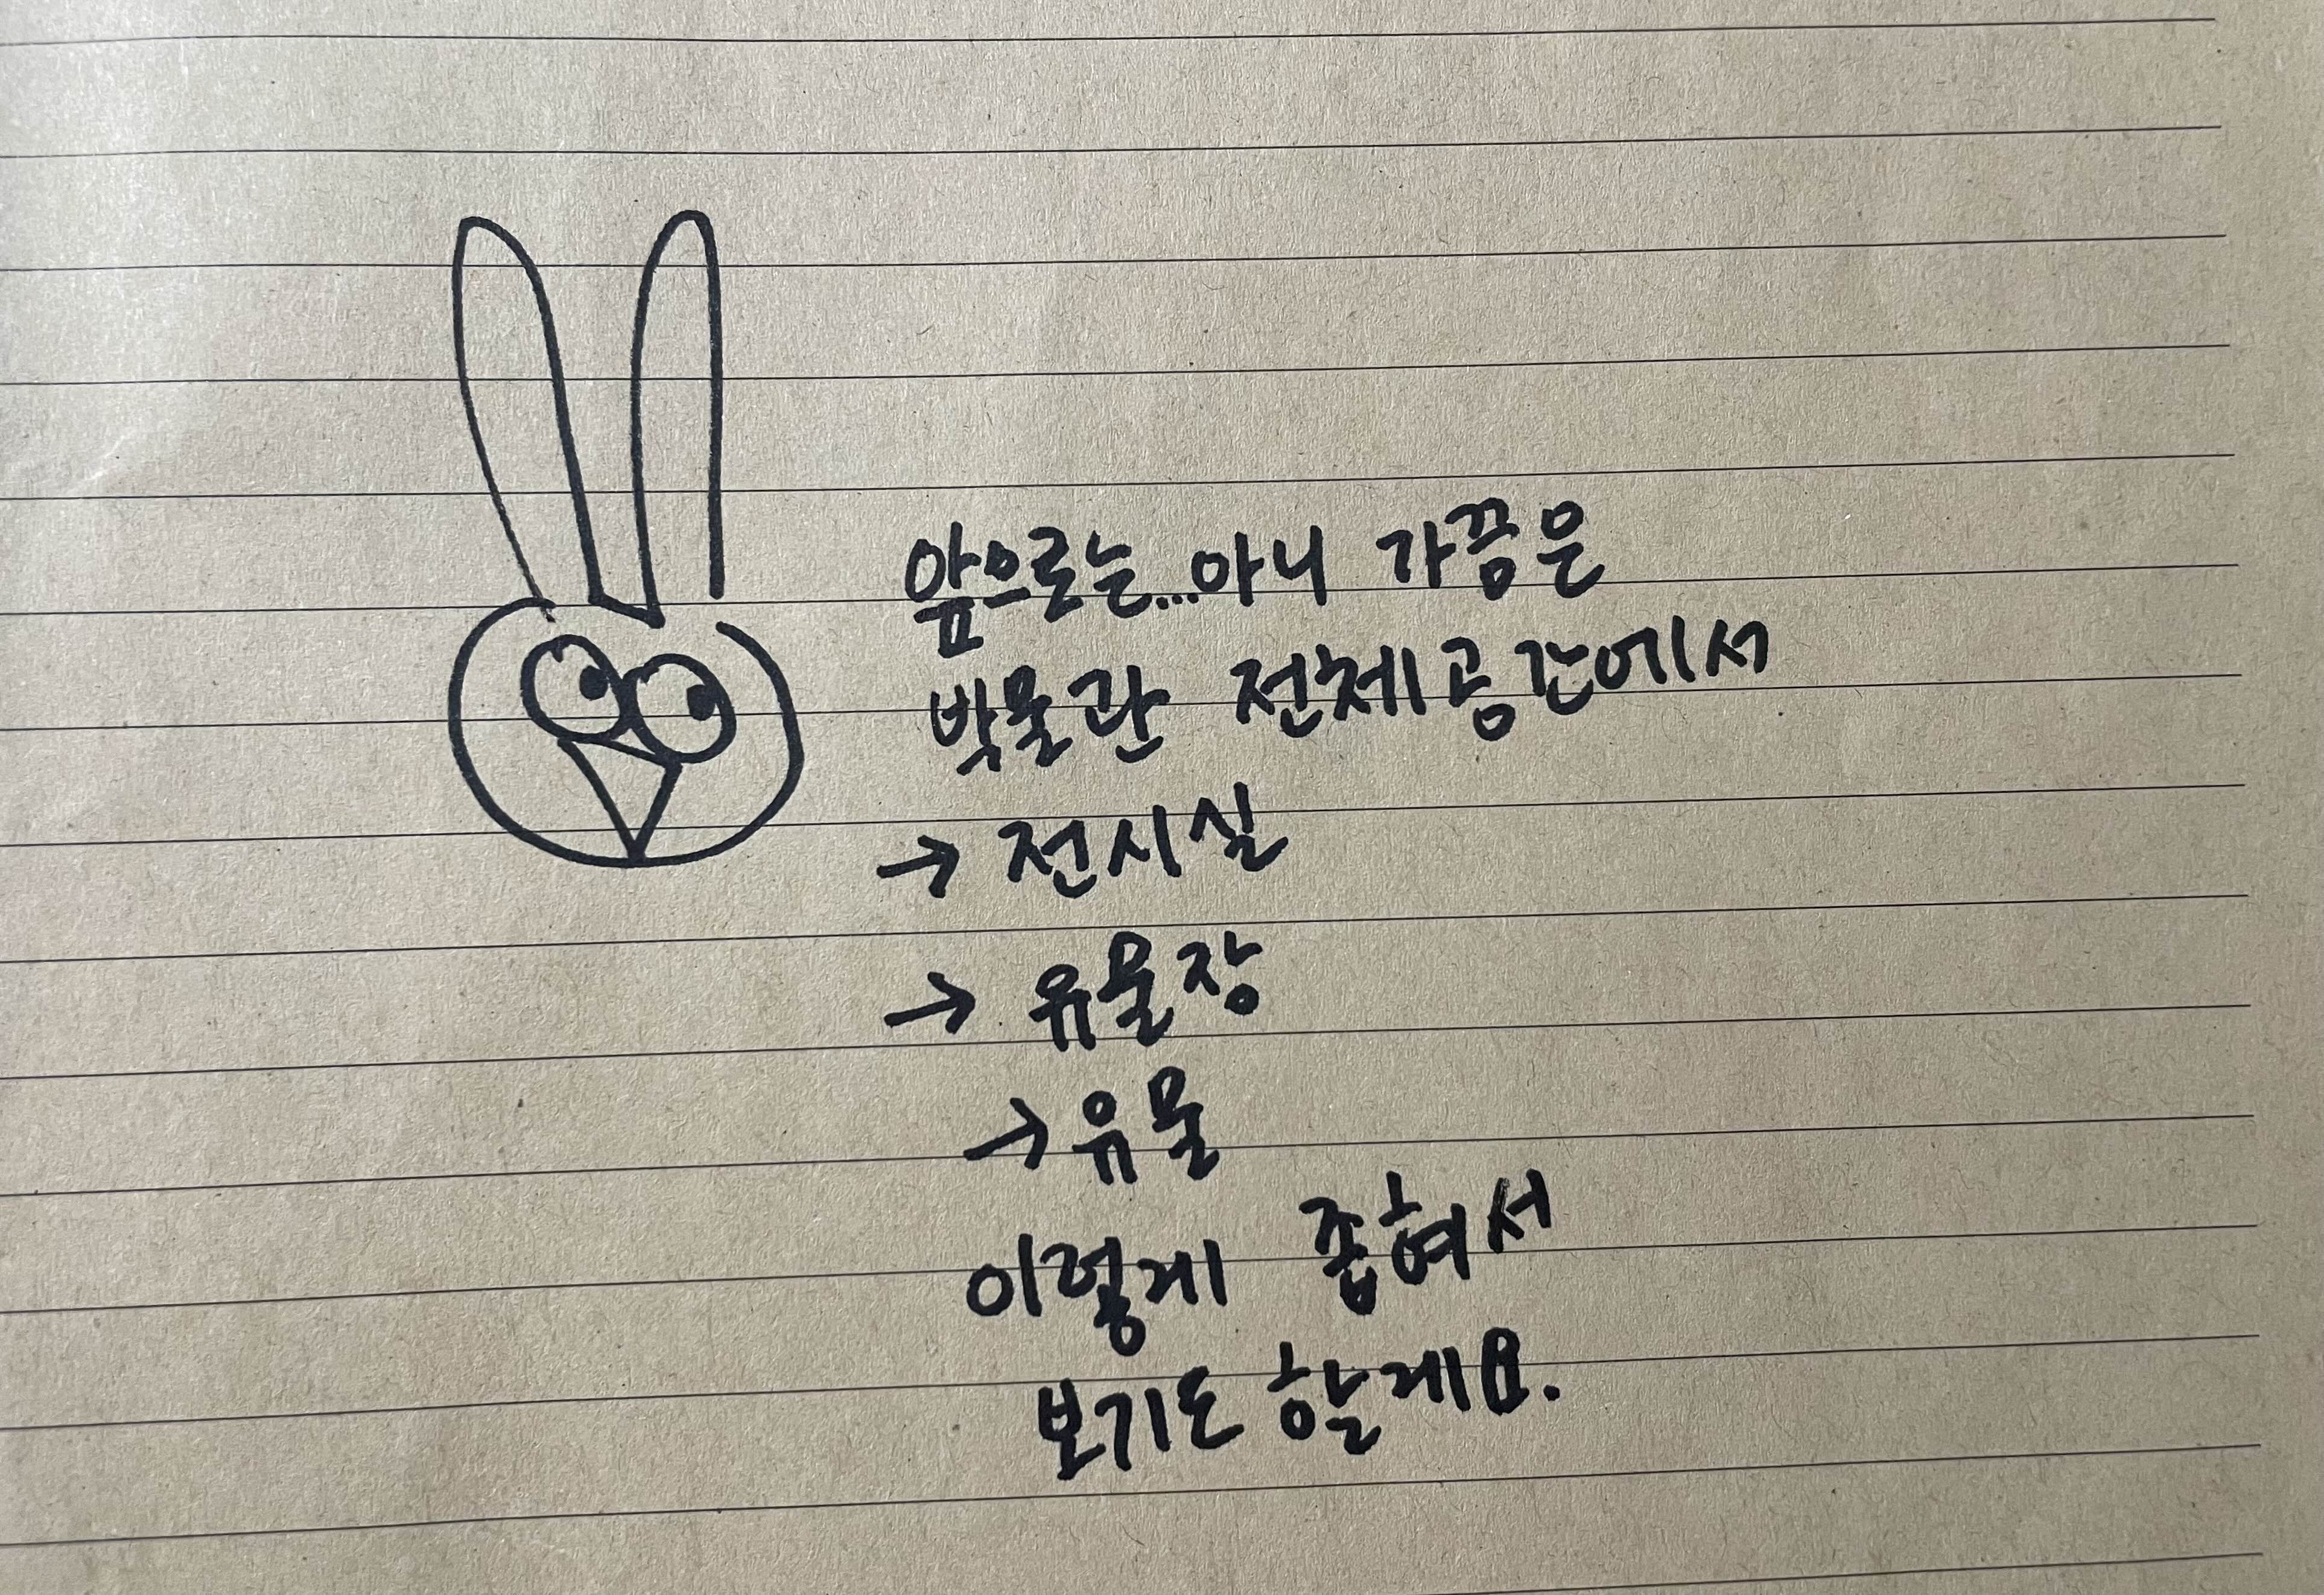 앞으로는...아니 가끔은
박물관 전체공간에서
→ 전시실
→ 유물장
→ 유물
이렇게 좁혀서
보기도 할게요.